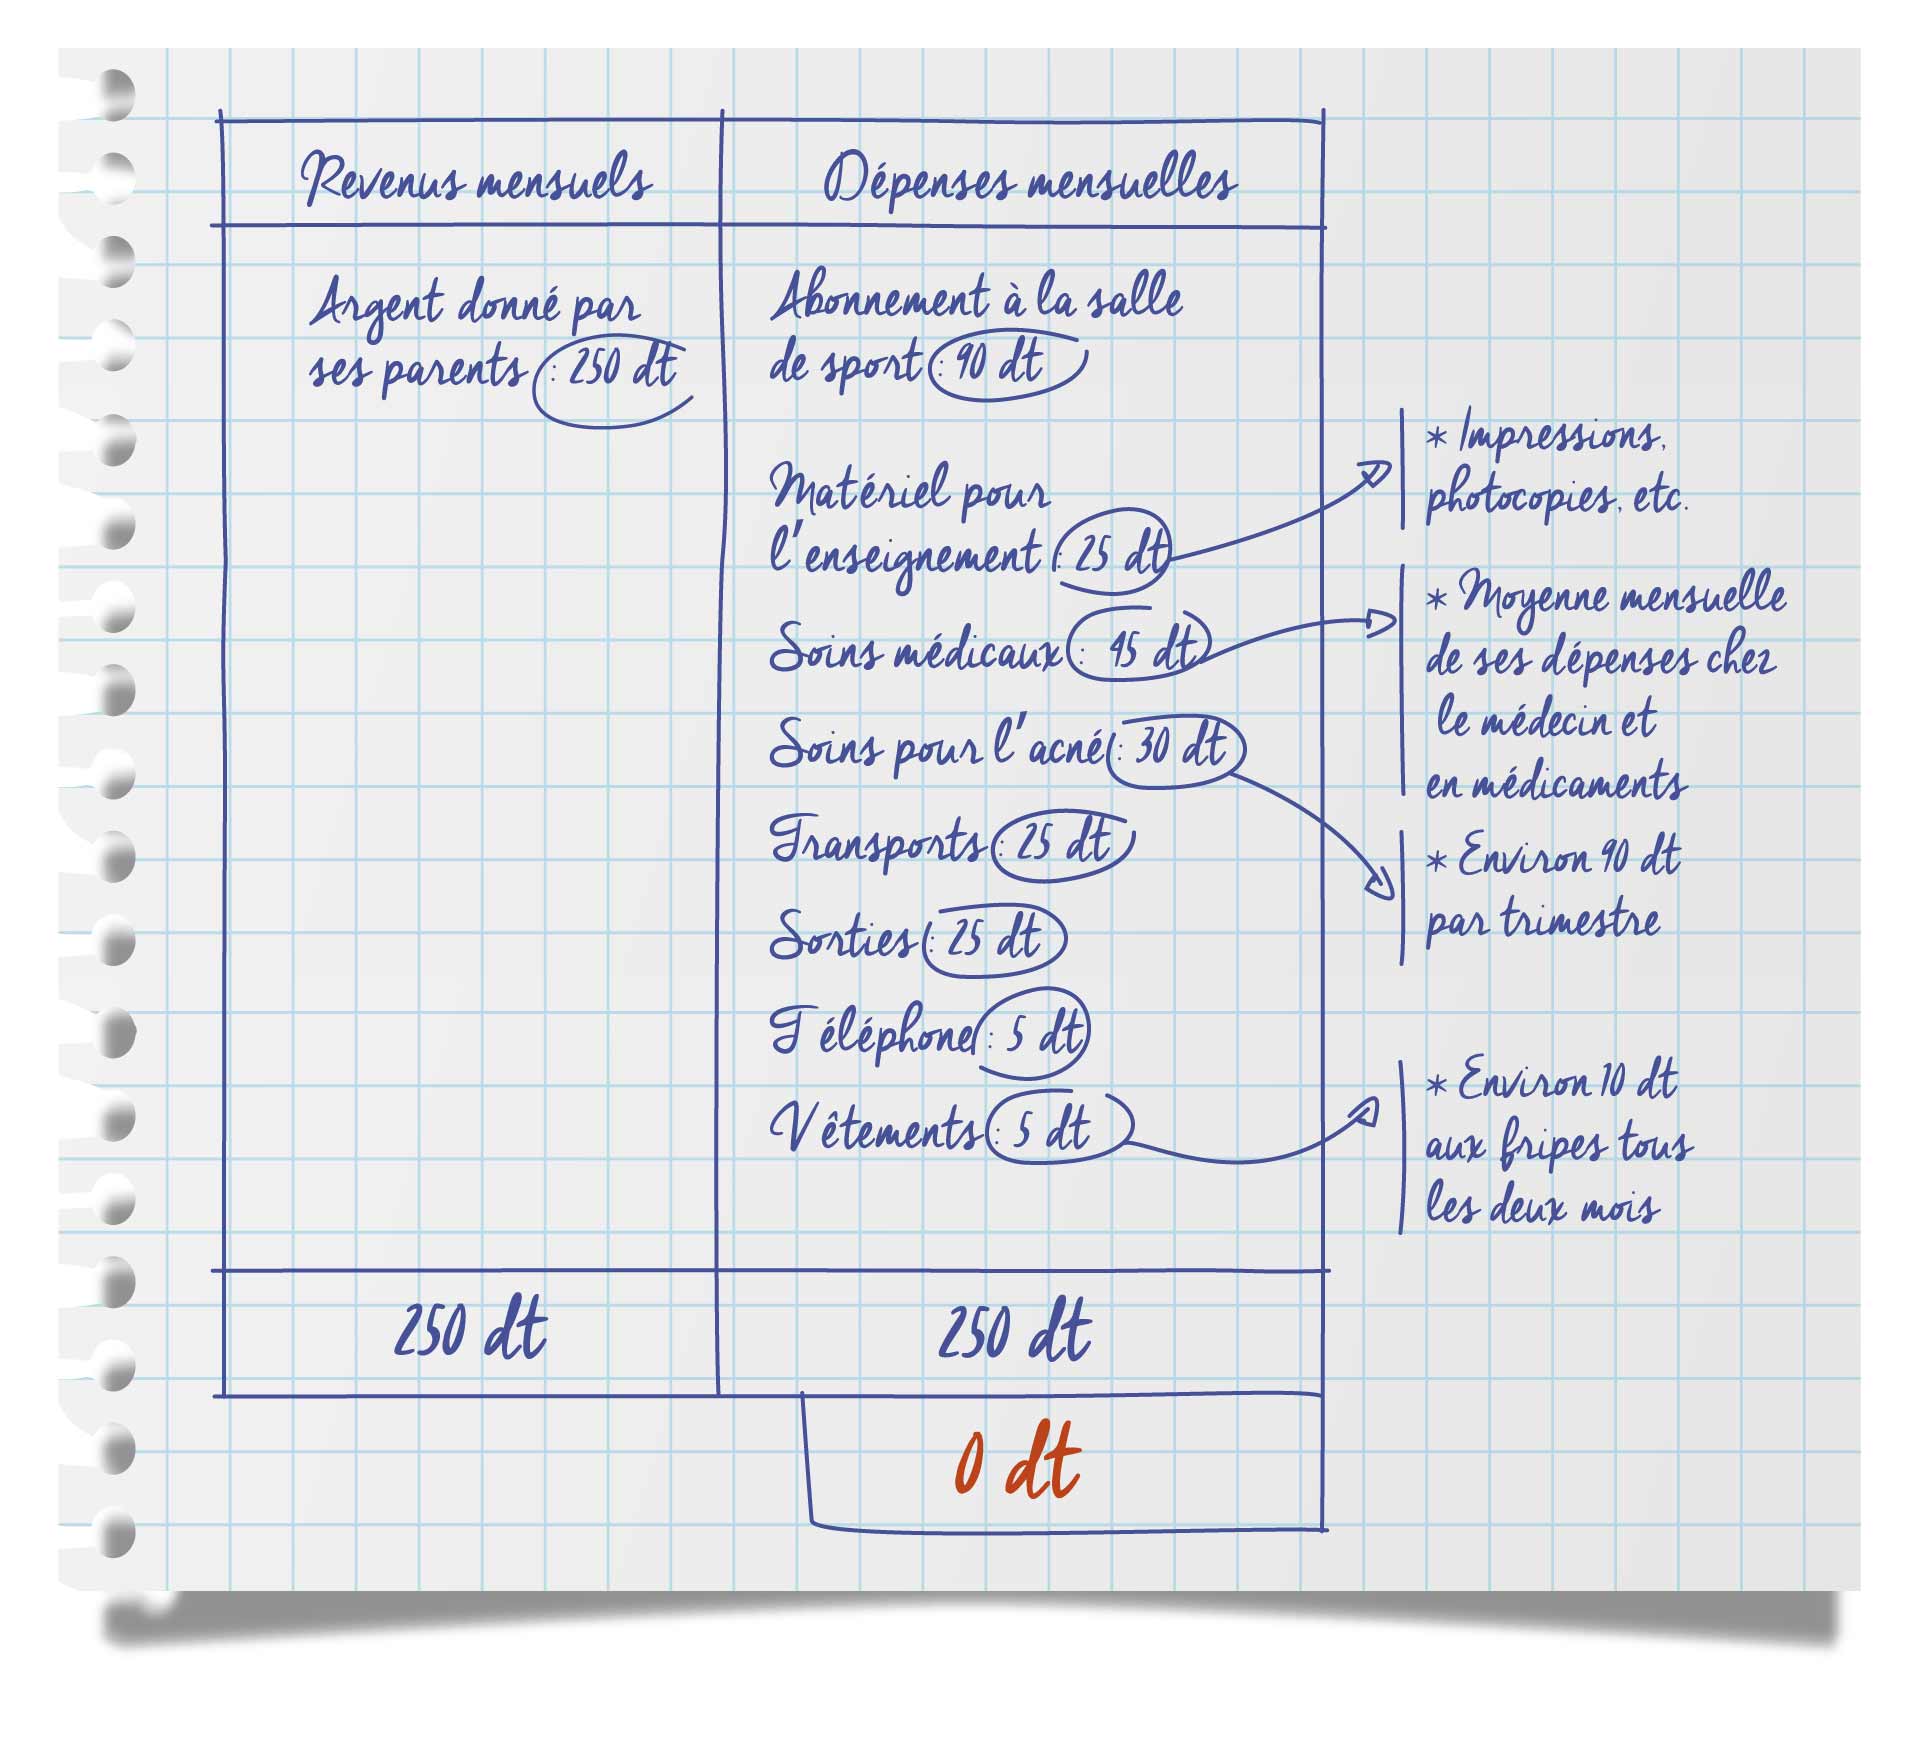 Revenus mensuels
Dépenses mensuelles
Argent donné par
ses parents : 250 dt
Abonnement à la salle
de sport : 90 dt
Matériel pour
l'enseignement : 25 dt
* Impressions,
photocopies, etc.
Soins médicaux : 45 dt
* Moyenne mensuelle
de ses dépenses chez
le médecin et
en médicaments
Soins pour l'acné : 30 dt
* Environ 90 dt
par trimestre
Transports : 25 dt
Sorties : 25 dt
Téléphone : 5 dt
Vêtements : 5 dt
* Environ 10 dt
aux fripes tous
les deux mois
250 dt
250 dt
0 dt